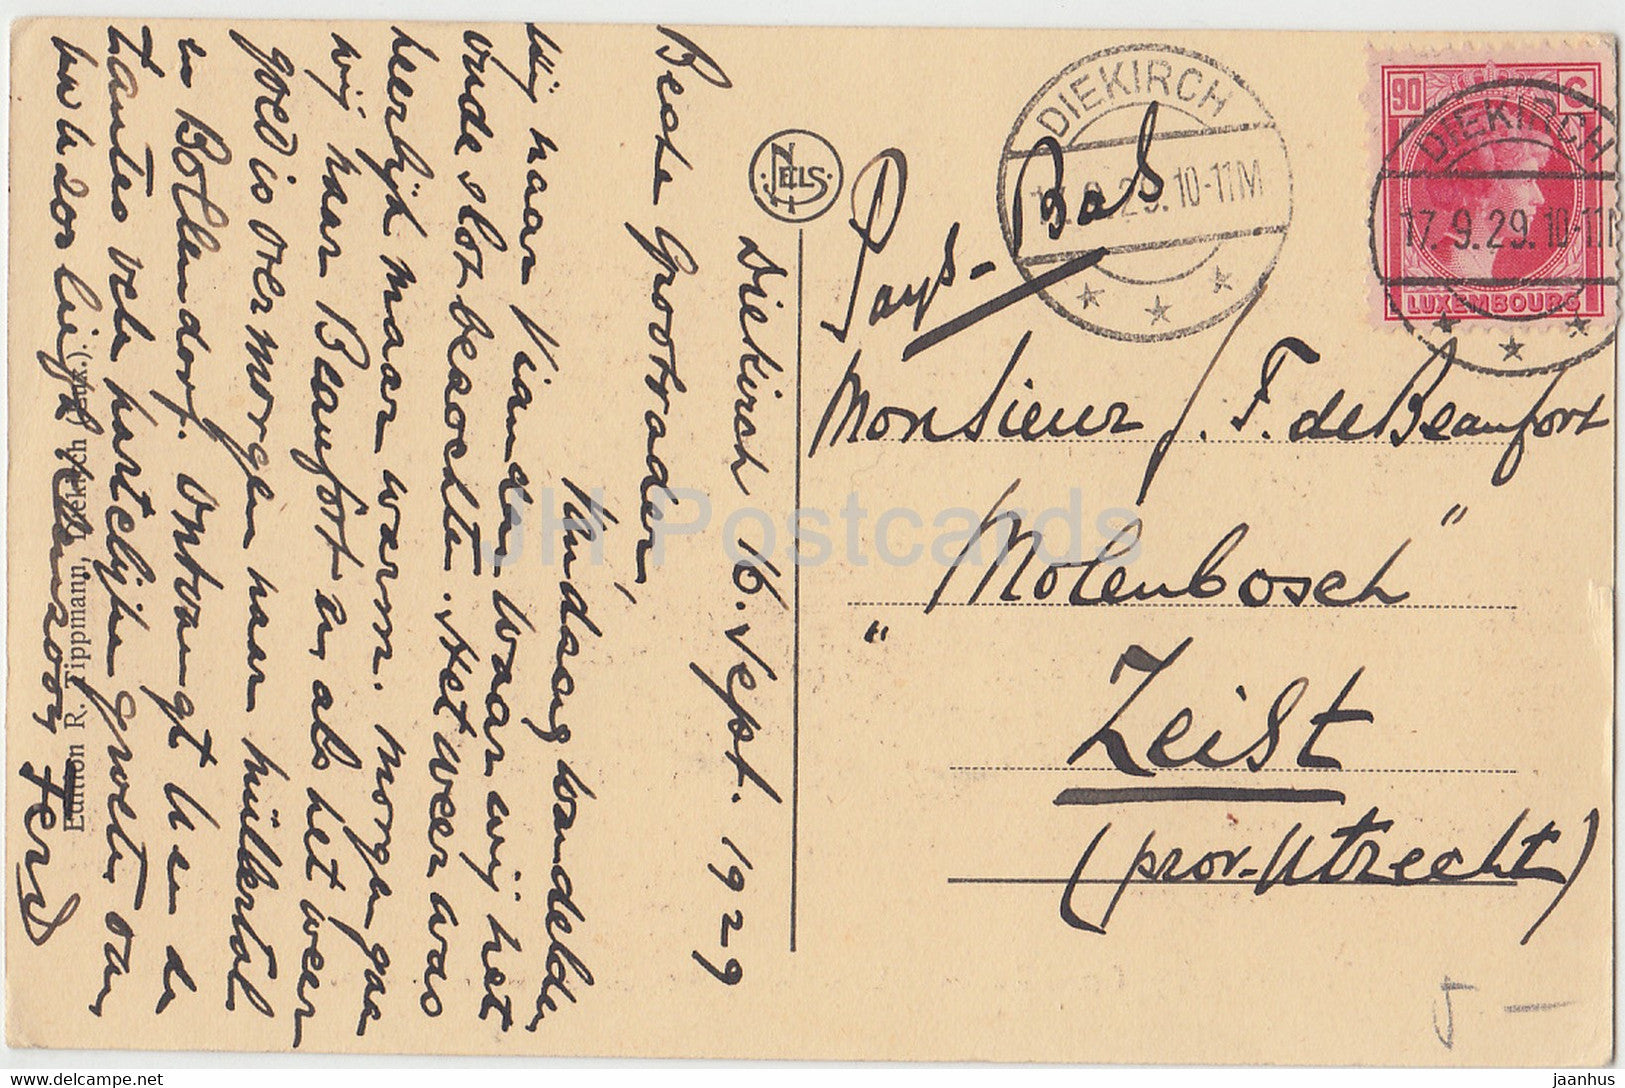 Diekirch 16. Sept. 1929
Beste Grootvader,
Vandaag wandelde
wij naar Vianden waar wij het
oude slot bezochten. Het weer was
heerlijk maar warm. Morgen gaan
wij naar Beaufort en als het weer
goed is overmorgen naar Müllertal
en Bollendorf. Ontvangt U en de
tantes vele hartelijke groeten van
Uw kleinzoon Ferd
Edition R. Tippmann, Diekirch (Lux.)
NELS
DIEKIRCH
17.9.29.10-11M
90 C
LUXEMBOURG
DIEKIRCH
17.9.29.10-11M
Pays-Bas
Monsieur F. de Beaufort
"Molenbosch"
Zeist
(prov. Utrecht)
5 –
JH Postcards
www.delcampe.net
jaanhus